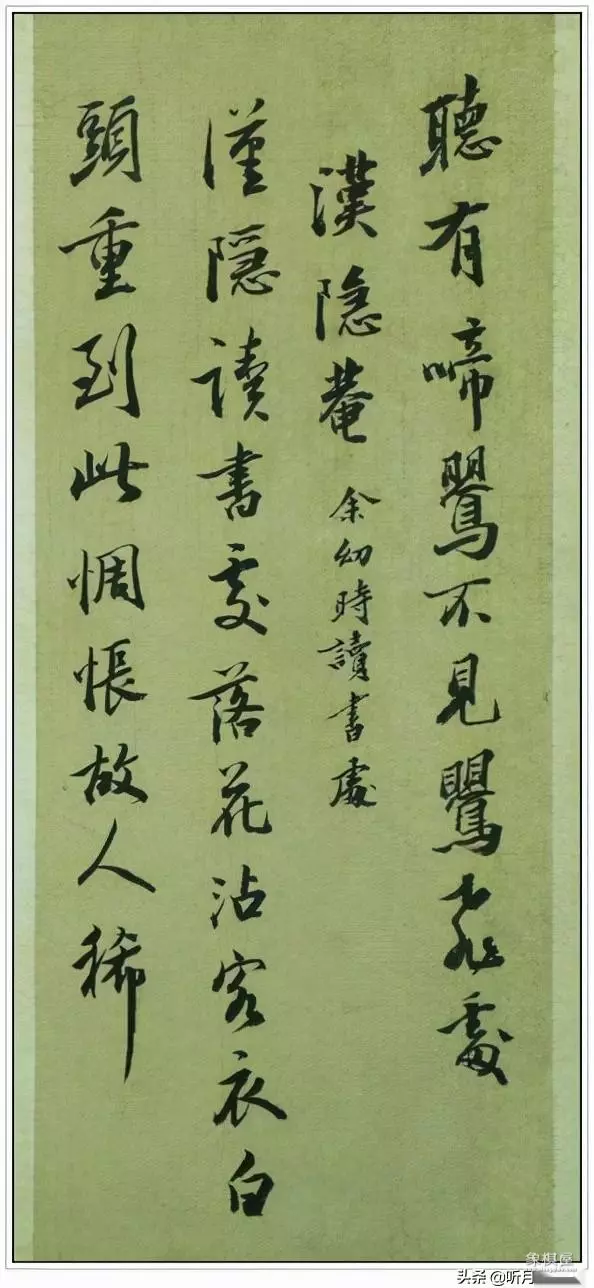 聽有啼鸎不見鸎飛處
漢隱菴 余幼時讀書處
漢隱讀書處落花沾客衣白
頭重到此惆悵故人稀
象棋屋
头条 @听月